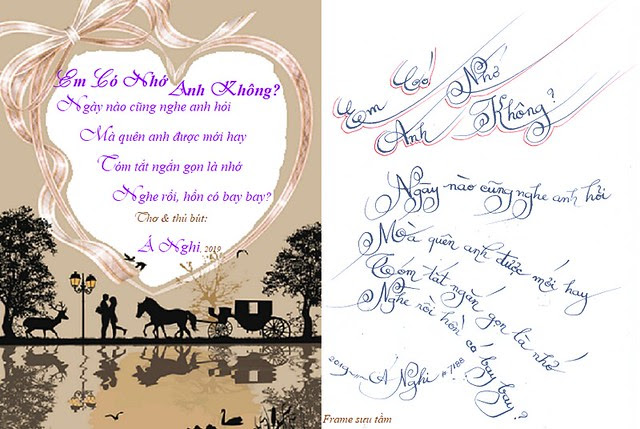 Em Có Nhớ Anh Không?
Ngày nào cũng nghe anh hỏi
Mà quên anh được mới hay
Tóm tắt ngắn gọn là nhớ
Nghe rồi, hồn có bay bay?
Thơ & thủ bút:
Á Nghi, 2019
Em Có Nhớ
Anh Không?
Ngày nào cũng nghe anh hỏi
Mà quên anh được mới hay
Tóm tắt ngắn gọn là nhớ
Nghe rồi hồn có bay bay?
2019 Á Nghi # 7188
Frame sưu tầm